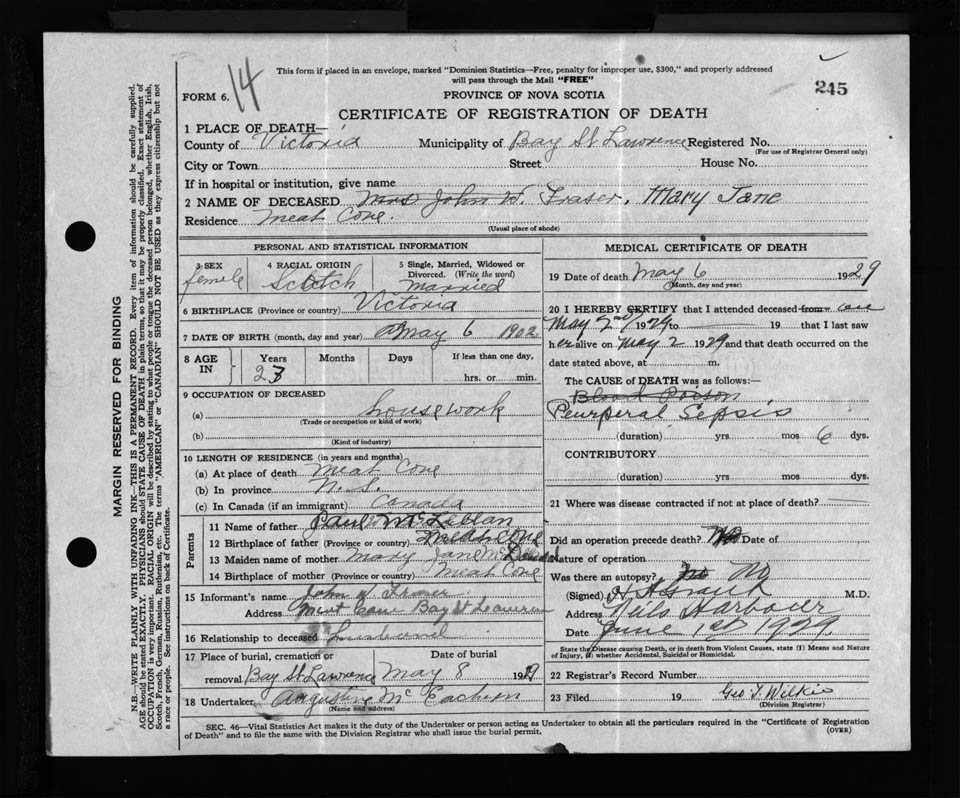 14
This form if placed in an envelope, marked "Dominion Statistics—Free, penalty for improper use, $300," and properly addressed
will pass through the Mail "FREE"
245
FORM 6.
PROVINCE OF NOVA SCOTIA
CERTIFICATE OF REGISTRATION OF DEATH
1 PLACE OF DEATH—
County of Victoria Municipality of Bay St Lawrence Registered No.
(For use of Registrar General only)
City or Town Street House No.
If in hospital or institution, give name
2 NAME OF DECEASED Mrs John W. Fraser, Mary Jane
Residence Meat Cove.
(Usual place of abode)
PERSONAL AND STATISTICAL INFORMATION
3 SEX 4 RACIAL ORIGIN 5 Single, Married, Widowed or
Divorced. (Write the word)
female Scotch Married
6 BIRTHPLACE (Province or country) Victoria
7 DATE OF BIRTH (month, day and year) May 6 1902
8 AGE IN Years Months Days If less than one day,
23 hrs. or min.
9 OCCUPATION OF DECEASED
(a) housework
(Trade or occupation or kind of work)
(b)
(Kind of industry)
10 LENGTH OF RESIDENCE (in years and months)
(a) At place of death Meat Cove
(b) In province N.S.
(c) In Canada (if an immigrant) Canada
Parents
11 Name of father Paul
12 Birthplace of father (Province or country)
13 Maiden name of mother Mary Jane
14 Birthplace of mother (Province or country) Meat Cove
15 Informant's name John W Fraser
Address Meat Cove Bay St Lawrence
16 Relationship to deceased husband
17 Place of burial, cremation or Date of burial
removal Bay St. Lawrence May 8 1929
18 Undertaker Augustine McEachern
(Name and address)
MEDICAL CERTIFICATE OF DEATH
19 Date of death May 6 1929
(Month, day and year)
20 I HEREBY CERTIFY that I attended deceased from
May 2nd 1929 to 19 that I last saw
her alive on May 2 1929 and that death occurred on the
date stated above, at m.
The CAUSE of DEATH was as follows:—
Blood Poison
Peurperal Sepsis
(duration) yrs mos 6 dys.
CONTRIBUTORY
(duration) yrs. mos dys.
21 Where was disease contracted if not at place of death?
Did an operation precede death? No Date of
Nature of operation
Was there an autopsy? No
(Signed) M.D.
Address Neils Harbour
Date June 1st 1929.
State the Disease causing Death, or in death from Violent Causes, state (1) Means and Nature
of Injury, (2) whether Accidental, Suicidal or Homicidal.
22 Registrar's Record Number
23 Filed 19 Geo. T. Wilkie
(Division Registrar)
SEC. 46—Vital Statistics Act makes it the duty of the Undertaker or person acting as Undertaker to obtain all the particulars required in the "Certificate of Registration
of Death" and to file the same with the Division Registrar who shall issue the burial permit.
(OVER)
MARGIN RESERVED FOR BINDING
N.B.—WRITE PLAINLY WITH UNFADING INK—THIS IS A PERMANENT RECORD. Every item of information should be carefully supplied.
AGE should be stated EXACTLY. PHYSICIANS should STATE CAUSE OF DEATH in plain terms, so that it may be properly classified. Exact statement of
OCCUPATION is very important. RACIAL ORIGIN will be described by stating to what people or tongue the deceased person belonged, whether English, Irish,
Scotch, French, German, Russian, Ruthenian, etc. The terms "AMERICAN" or "CANADIAN" SHOULD NOT BE USED as they express citizenship but not
a race or people. See instructions on back of Certificate.